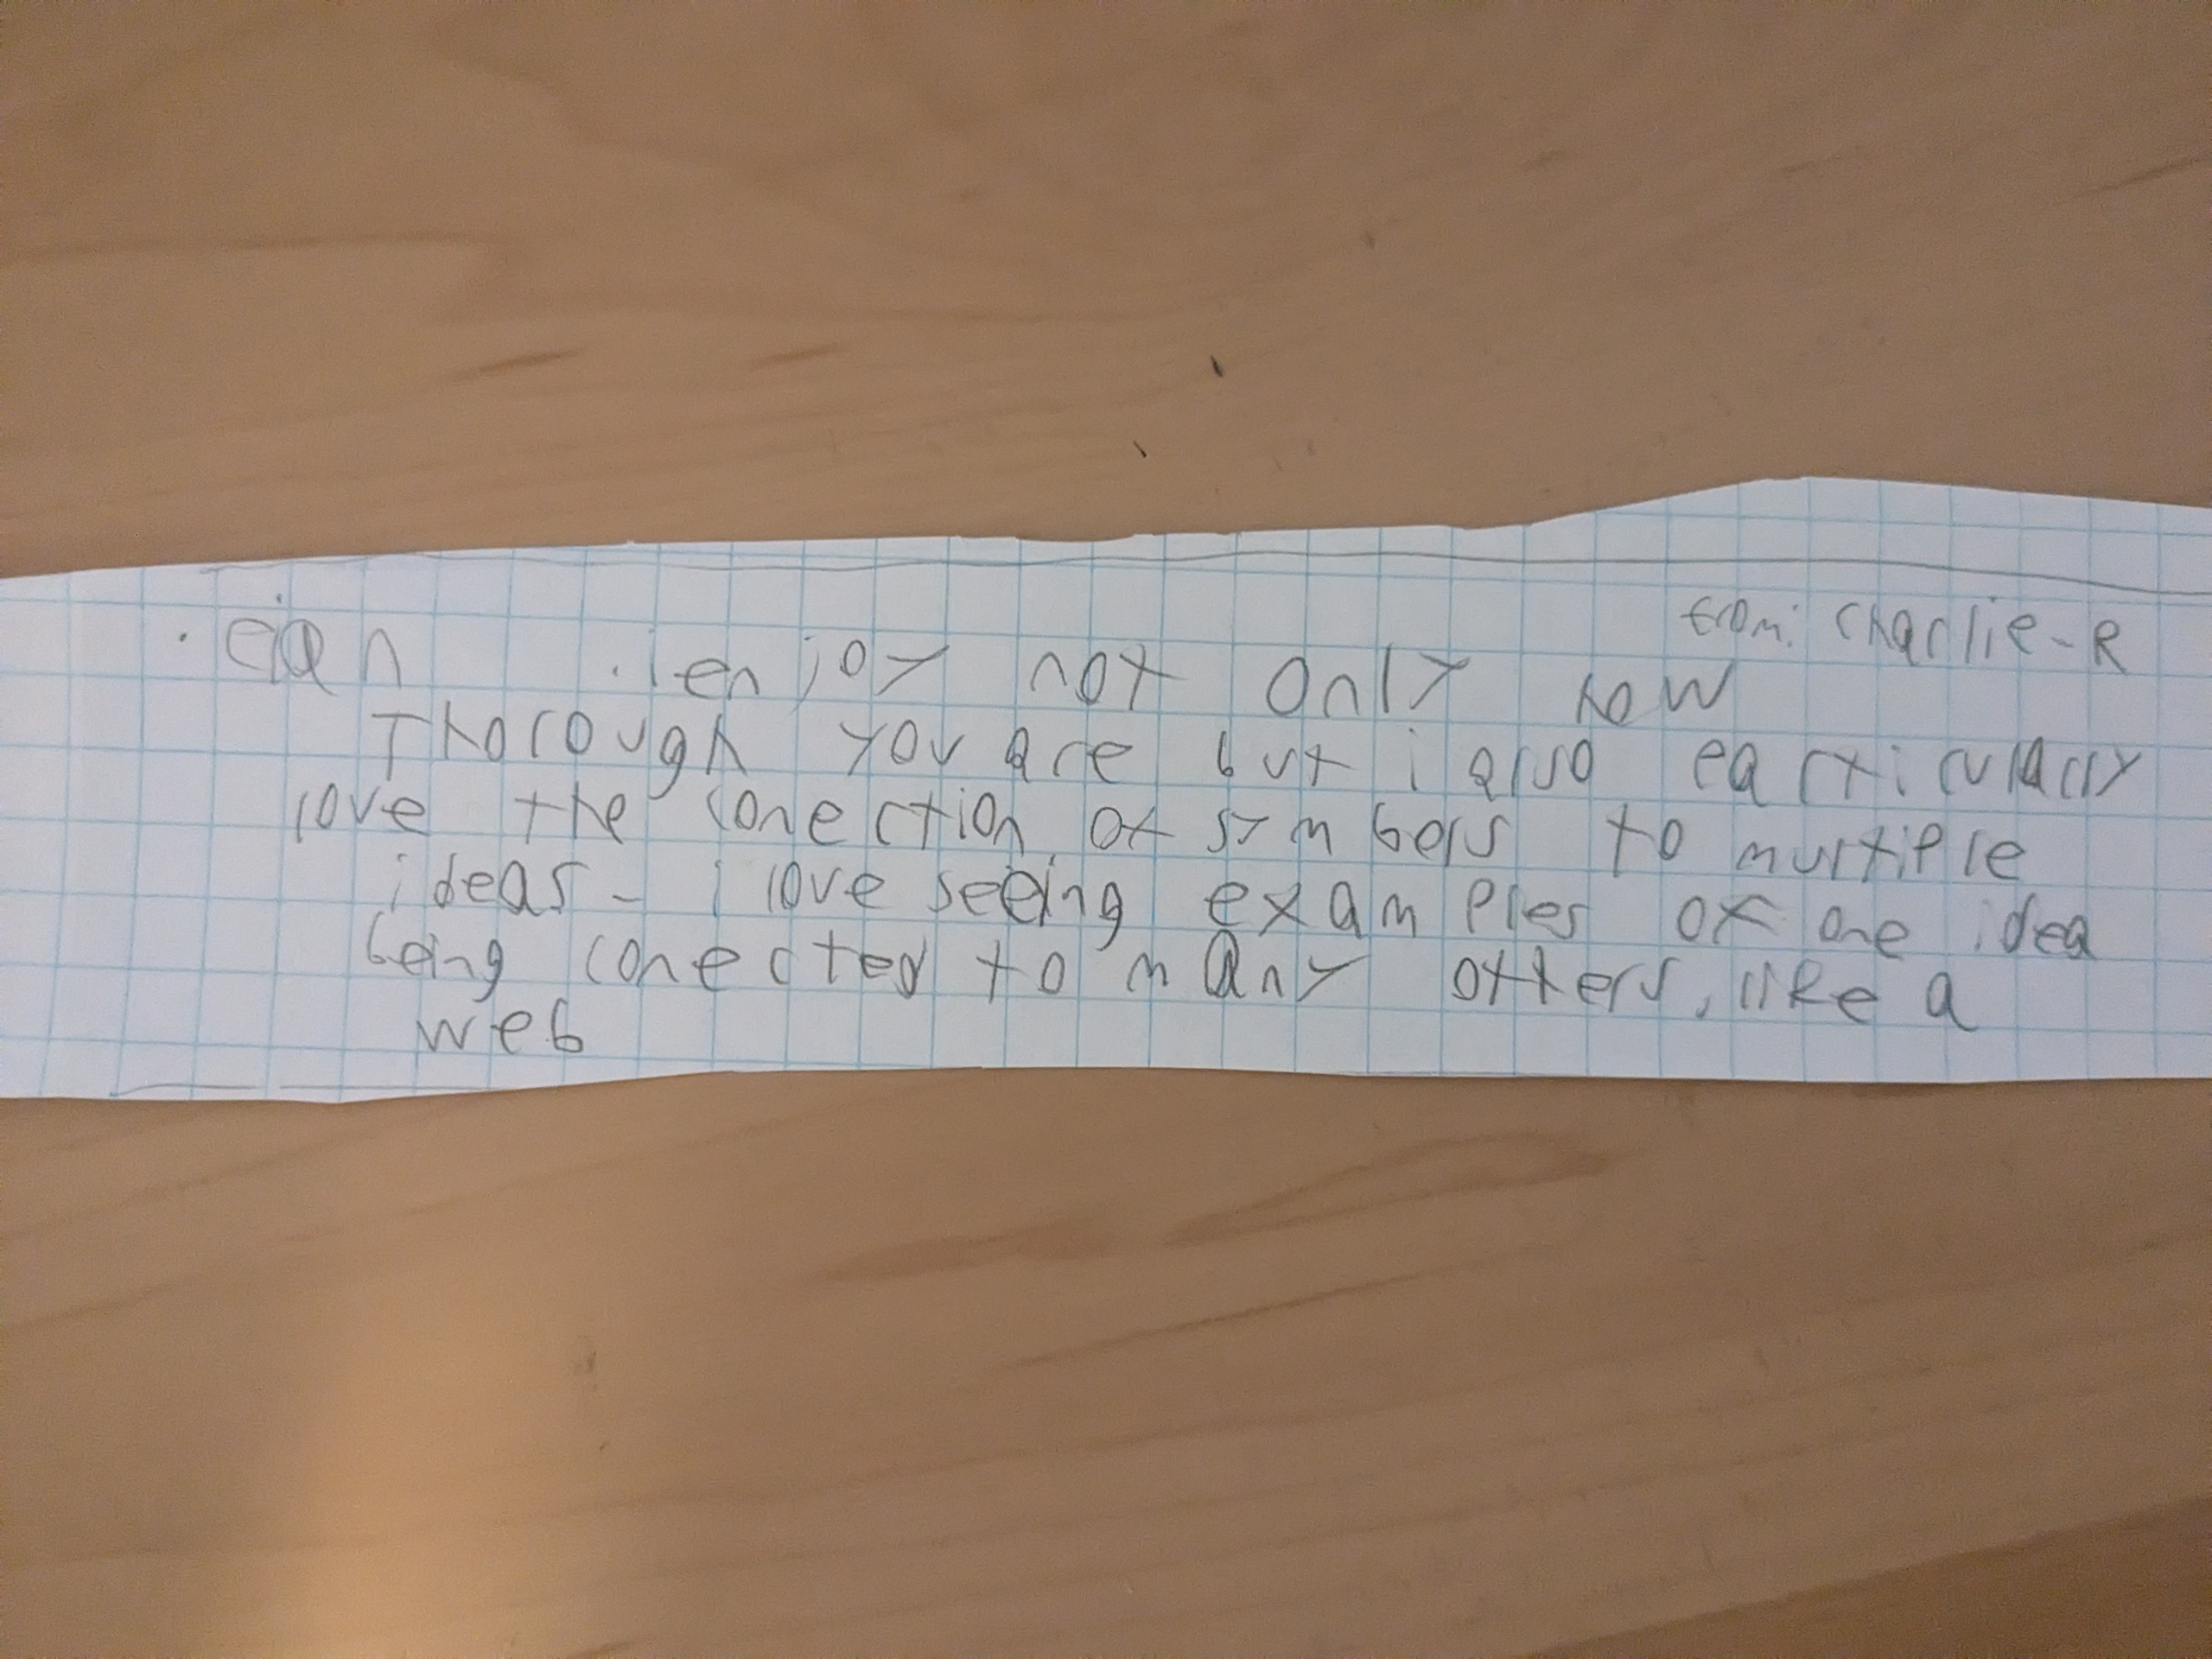 from: Charlie-R
· eian · i enjoy not only how
Thorough you are but i also particularly
love the conection of symbols to multiple
ideas - i love seeing examples of one idea
being conected to many others, like a
web